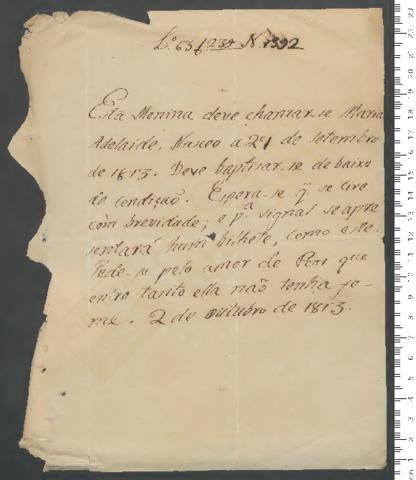 L.º 63 f 239 N. 1392
Esta Menina deve chamar-se Maria
Adelaide. Nasceo a 21 de setembro
de 1813. Deve baptisar-se debaixo
de condição. Espera-se q̃ se tire
com brevidade; e p.ª signal se apre
sentará hum bilhete, como este.
Pede-se pelo amor de Deos que
entre tanto ella não tenha fo-
me. 2 de outubro de 1813.